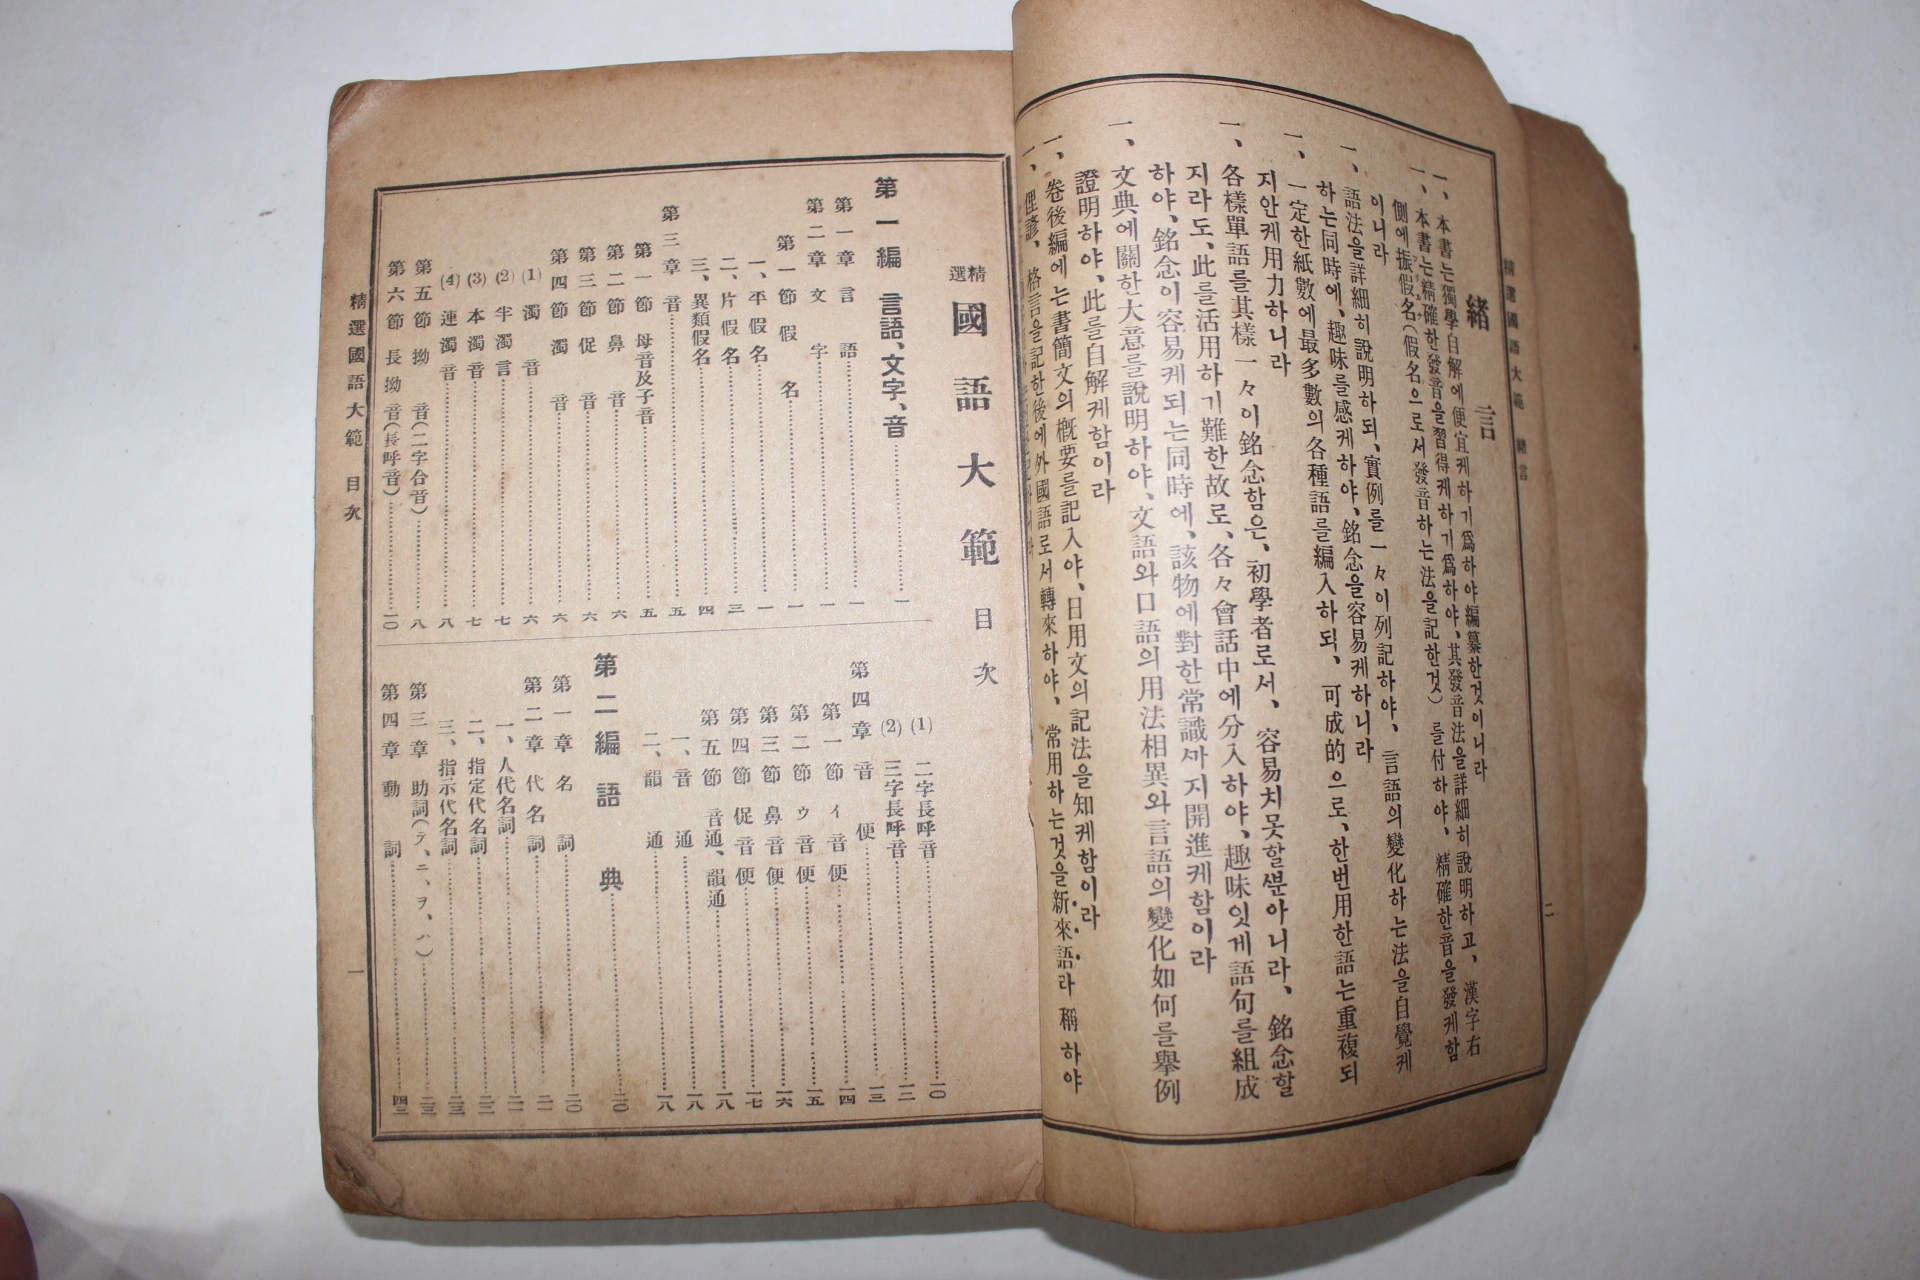 精選國語大範 緖言
緖言
一、本書는獨學自解에便宜케하기爲하야編纂한것이니라
一、本書는精確한發音을習得케하기爲하야、其發音法을詳細히說明하고、漢字右
側에振假名(假名으로서發音하는法을記한것)를付하야、精確한音을發케함
이니라
一、語法을詳細히說明하되、實例를一々이列記하야、言語의變化하는法을自覺케
하는同時에、趣味를感케하야、銘念을容易케하니라
一、一定한紙數에最多數의各種語를編入하되、可成的으로、한번用한語는重複되
지안케用力하니라
一、各樣單語를其樣一々이銘念함은、初學者로서、容易치못할뿐아니라、銘念할
지라도、此를活用하기難한故로、各々會話中에分入하야、趣味잇게語句를組成
하야、銘念이容易케되는同時에、該物에對한常識까지開進케함이라
一、文典에關한大意를說明하야、文語와口語의用法相異와言語의變化如何를擧例
證明하야、此를自解케함이라
一、卷後編에는書簡文의槪要를記入야、日用文의記法을知케함이라
一、俚諺、格言을記한後에外國語로서轉來하야、常用하는것을新來語라稱하야
二
精選 國語大範 目次
第一編 言語、文字、音……一
第一章 言語……一
第二章 文字……一
第一節 假名……一
一、平假名……一
二、片假名……三
三、異類假名……四
第三章 音……五
第一節 母音及子音……五
第二節 鼻音……六
第三節 促音……六
第四節 濁音……六
(1) 濁音……六
(2) 半濁言……七
(3) 本濁音……七
(4) 連濁音……八
第五節 拗音(二字合音)……八
第六節 長拗音(長呼音)……一〇
(1) 二字長呼音……一〇
(2) 三字長呼音……一二
第四章 音便……一三
第一節 イ音便……一四
第二節 ウ音便……一五
第三節 鼻音便……一六
第四節 促音便……一七
第五節 音通、韻通……一八
一、音通……一八
二、韻通……一八
第二編 語典……二〇
第一章 名詞……二〇
第二章 代名詞……二一
一、人代名詞……二一
二、指定代名詞……二二
三、指示代名詞……二三
第三章 助詞(テ、ニ、ヲ、ハ)……二三
第四章 動詞……四二
精選國語大範 目次
一